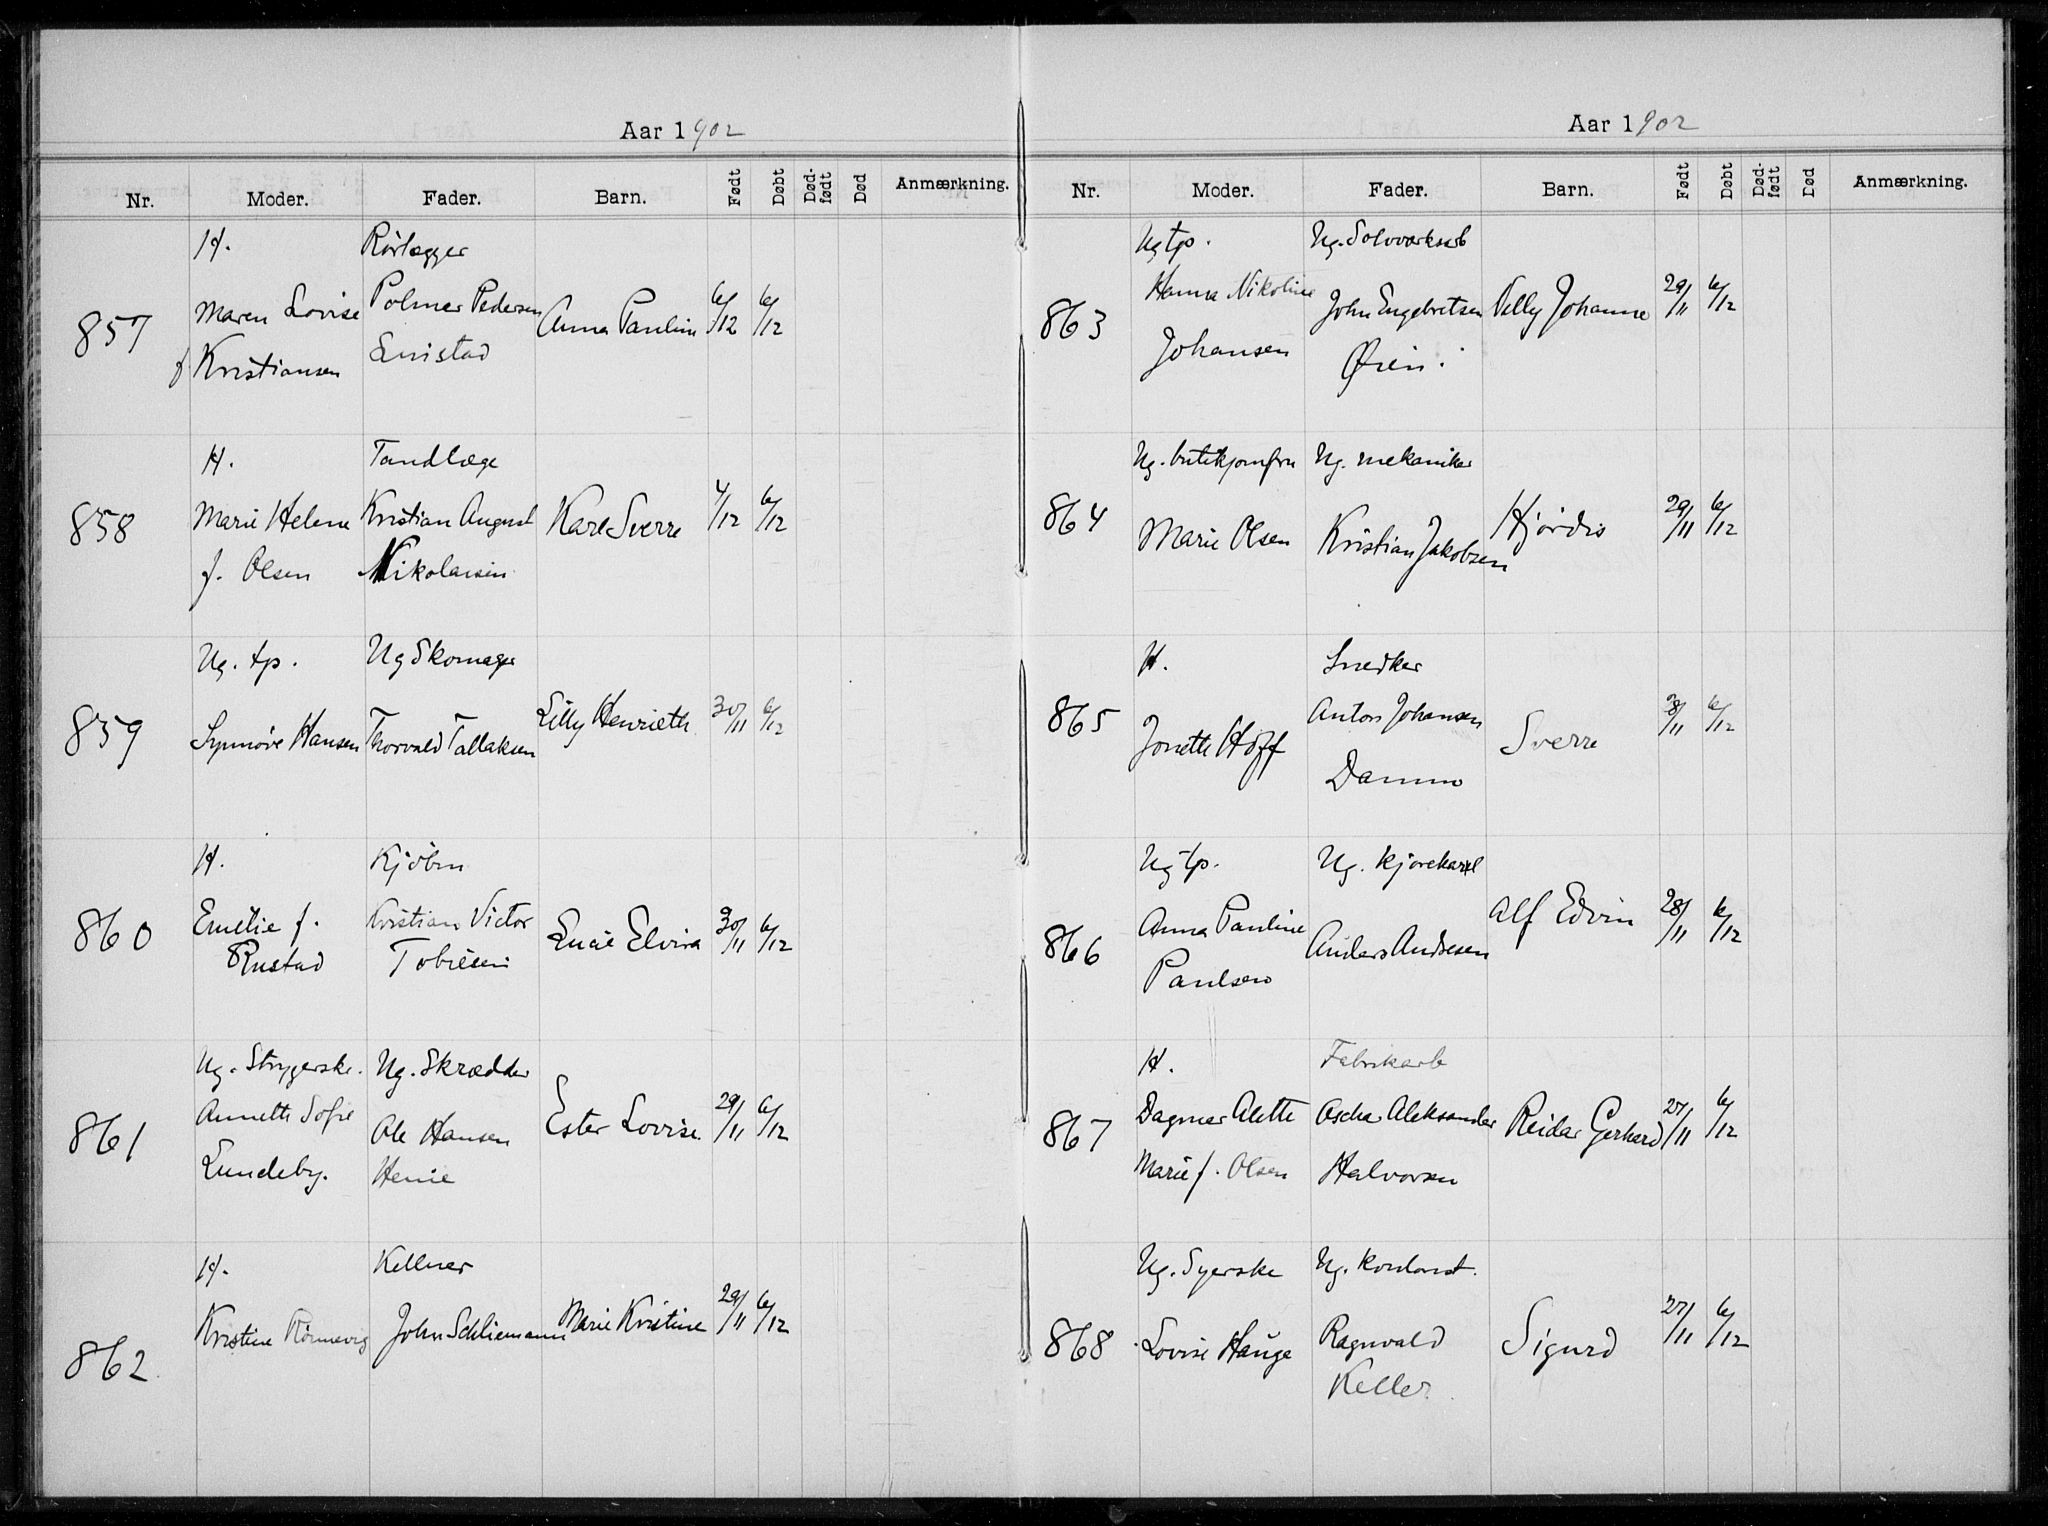 Aar 1902
Nr. Moder. Fader. Barn. Født Døbt Død-født Død Anmærkning.
H. Rørlægger
857 Maren Lovise Polmer Pedersen Anna Paulin 6/12 6/12
f Kristiansen
H. Tandlæge
858 Marie Helene Kristian August Kare Sverre 4/12 6/12
f. Olsen Nikolaisen
Ug. tp. Ug Skomager
859 Synnøve Hansen Thorvald Tallaksen Lilly Henrieth 30/11 6/12
H. Kjøbm
860 Emilie f. Kristian Victor Lucie Elvira 30/11 6/12
Rustad Tobiesen
Ug. Strygerske. Ug. Skrædder
861 Annette Sofie Ole Hansen Ester Lovise. 29/11 6/12
Lundeby. Henie
H. Kellner
862 Kristine Rönnevig John Schliemann Marie Kristine 29/11 6/12
Aar 1902
Nr. Moder. Fader. Barn. Født Døbt Død-født Død Anmærkning.
Ug tp. Ug.
863 Hanna Nikoline John Engebretsen Velly Johanne 29/11 6/12
Johansen Øien.
Ug. butikjomfru Ug. mekaniker
864 Marie Olsen Kristian Jakobsen Hjördis 29/11 6/12
H. Snedker
865 Jonette Hoff Anton Johansen Sverre 28/11 6/12
Damm
Ug tp. Ug. kjørekarl
866 Anna Pauline Anders Andresen Alf Edvin 28/11 6/12
Paulsen
H. Fabrikarb
867 Dagmar Alette Oscar Aleksander Reidar Gerhard 27/11 6/12
Marie f. Olsen Halvorsen
Ug. Syerske Ug. kontorist.
868 Lovise Hauge Ragnvald Sigurd 27/11 6/12
Keller.